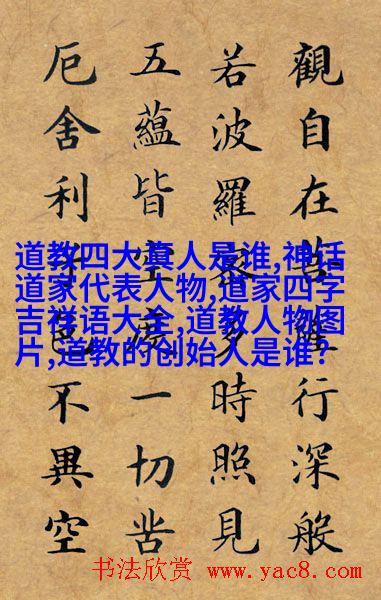 觀自在菩薩行深般
若波羅蜜多時照見
五蘊皆空度一切苦
厄舍利子色不異空
道教四大真人是谁,神话
道家代表人物,道家四字
吉祥语大全,道教人物图
片,道教的创始人是谁?
书法欣赏 www.yac8.com